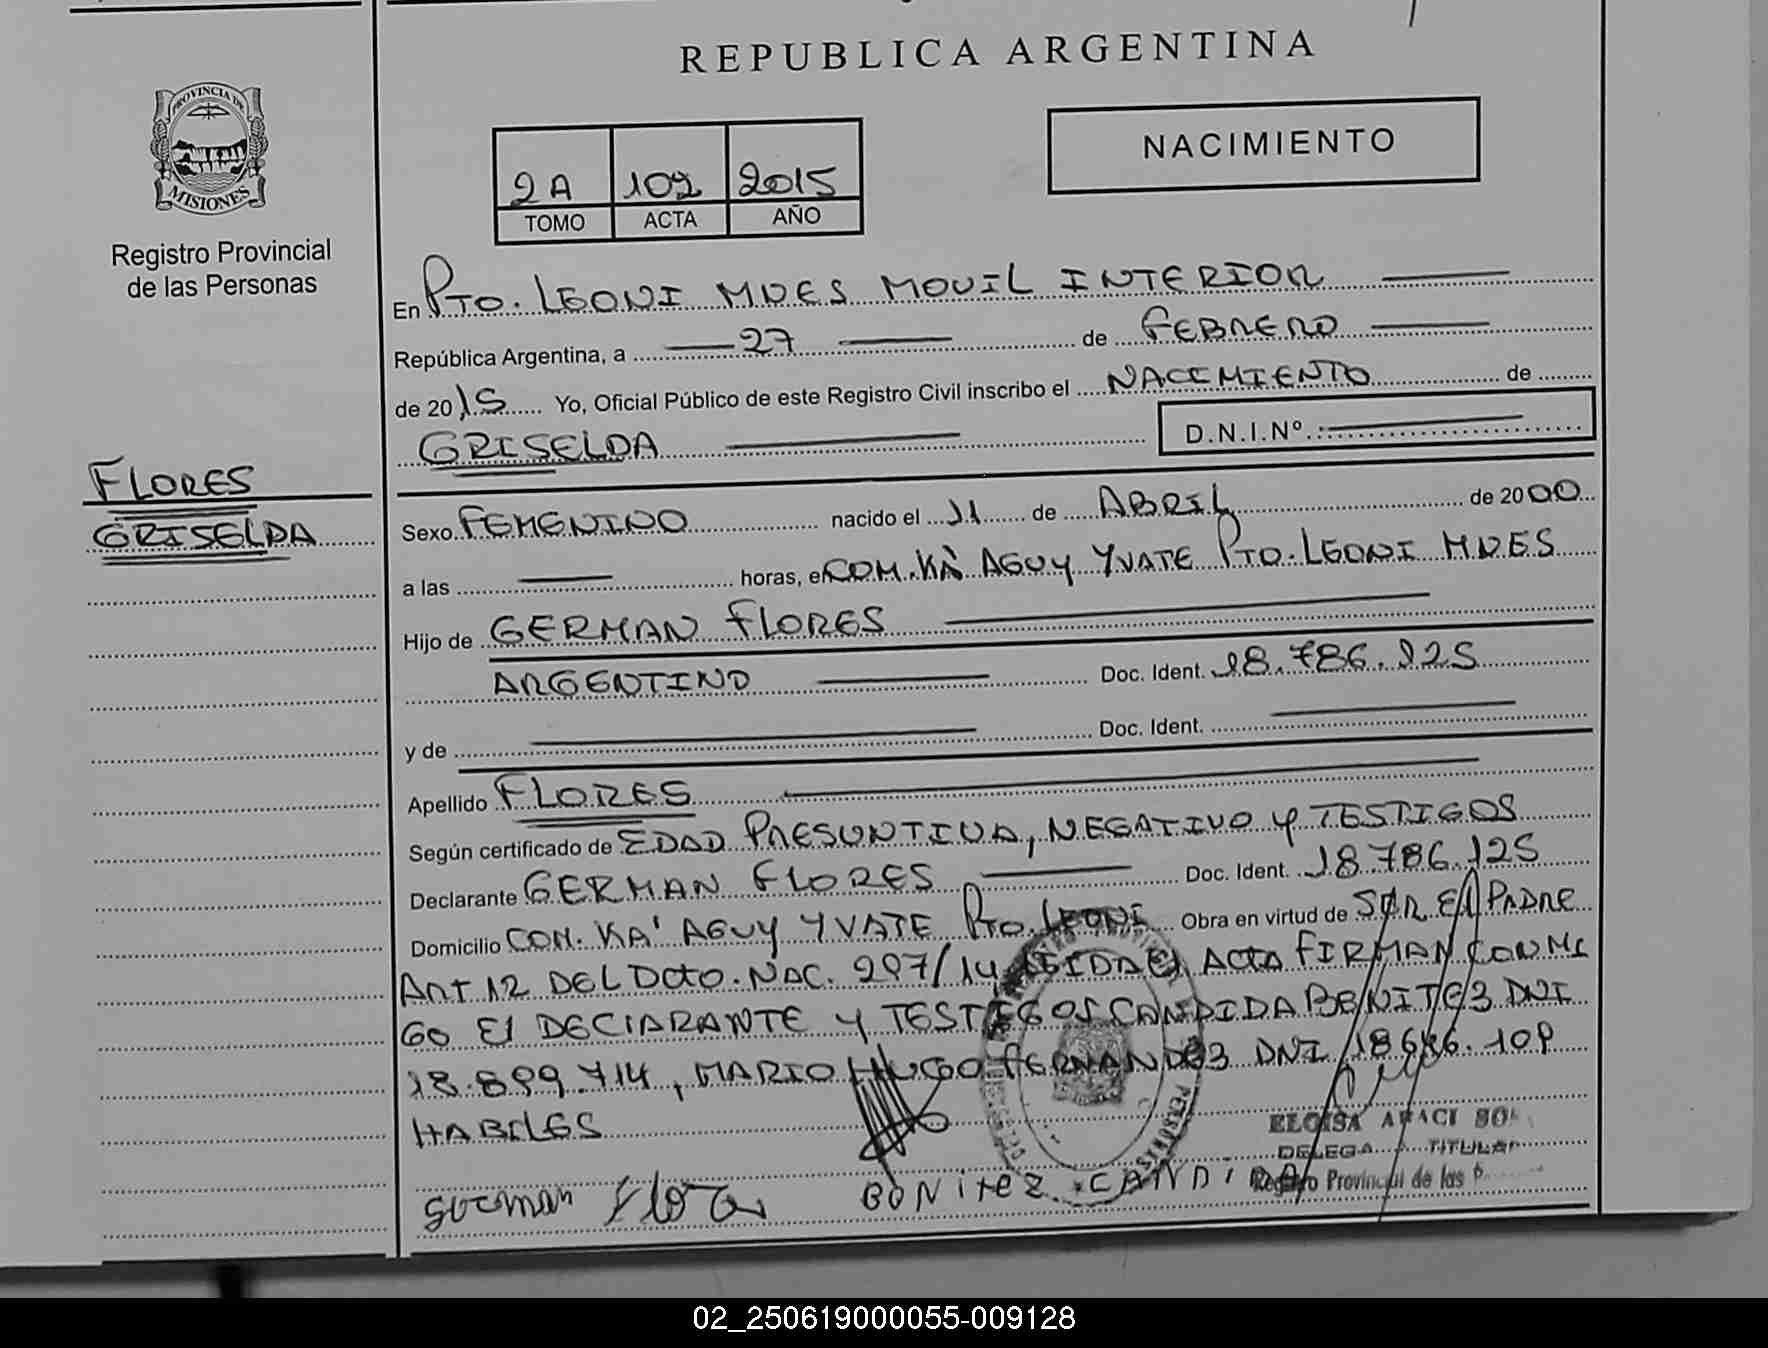 REPUBLICA ARGENTINA
PROVINCIA DE
MISIONES
Registro Provincial
de las Personas
2A 102 2015
TOMO ACTA AÑO
NACIMIENTO
En PTO. LEONI MNES MOVIL INTERIOR
República Argentina, a 27 de FEBRERO
de 2015 Yo, Oficial Público de este Registro Civil inscribo el NACIMIENTO de
GRISELDA D.N.I.Nº.
FLORES
GRISELDA
Sexo FEMENINO nacido el 11 de ABRIL de 2000
a las horas, en COM. KA' AGUY YVATE PTO. LEONI MNES
Hijo de GERMAN FLORES
ARGENTINO Doc. Ident. 18.786.125
y de Doc. Ident.
Apellido FLORES
Según certificado de EDAD PRESUNTIVA, NEGATIVO Y TESTIGOS
Declarante GERMAN FLORES Doc. Ident. 18.786.125
Domicilio COM. KA' AGUY YVATE PTO. LEONI Obra en virtud de SER El PADRE
ART 12 DEL Dcto. NAC. 297/14 LEIDA El ACTA FIRMAN CON MI
GO El DEClARANTE Y TESTIGOS CANDIDA BENITEZ DNI
18.899.714, MARIO HUGO FERNANDEZ DNI 18686.109
HABILES
ELOISA ARACI
DELEGA TITULAR
Registro Provincial de las
German Flores BONiTEZ CANDiDA
02_250619000055-009128